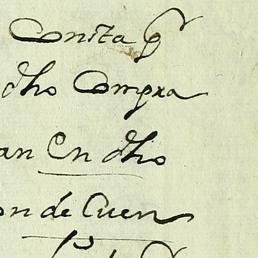 Consta p
dho Compra
an En dho
on de Cuen